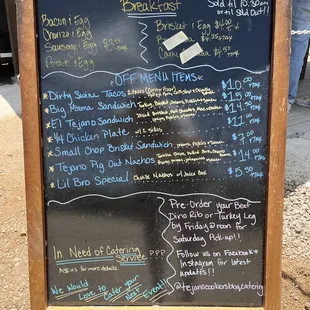 Breakfast
Sold til 10:30am
or til Sold Out!!
Bacon & Egg
Chorizo & Egg
Sausage & Egg
Potato & Egg
$3.50
Brisket & Egg $4.00
Carne $4.50
OFF MENU ITEMS
Dirty Swine Tacos $10.00 +TAX
Big Mama Sandwich $15.00 +TAX
El Tejano Sandwich $14.00 +TAX
1/4 Chicken Plate w/ 2 sides $11.00 +TAX
Small Chop Brisket Sandwich $7.00 +TAX
Tejano Pig Out Nachos $14.00 +TAX
Lil Bro Special Cheese Nachos w/ Juice Box $5.50 +TAX
In Need of Catering
Service ???
Ask us for more details.
We Would Love to Cater your Next Event!!
Pre-Order your Beef
Dino Rib or Turkey Leg
by Friday @ noon for
Saturday Pick-up!!
Follow us on Facebook &
Instagram for latest
updates!!
@tejanosmokersbbq.catering